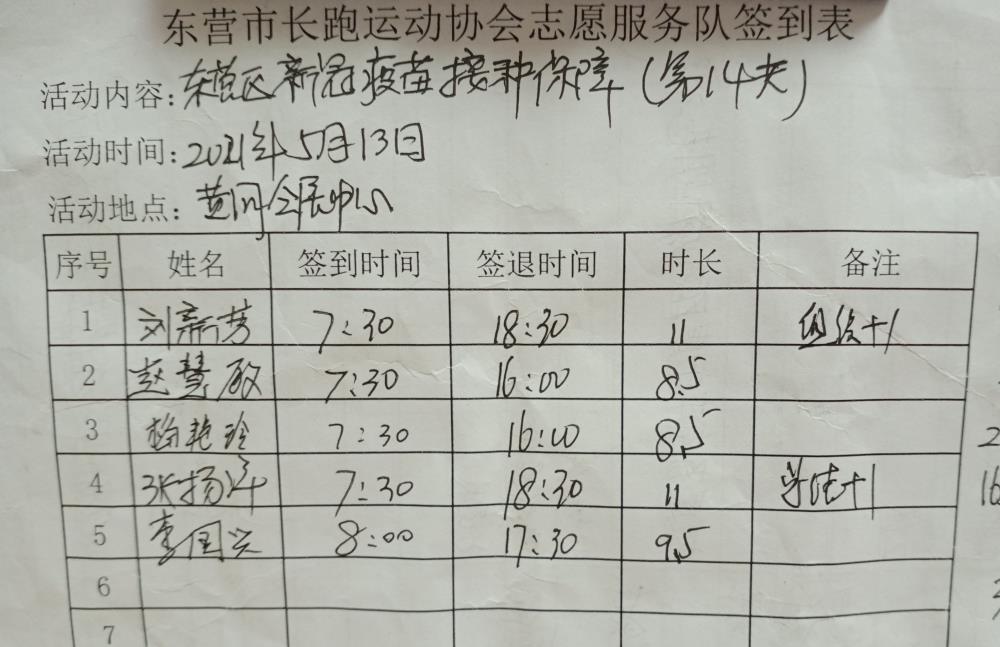 东营市长跑运动协会志愿服务队签到表
活动内容:东营区新冠疫苗接种保障(第14天)
活动时间:2021年5月13日
活动地点:黄河会展中心
序号 姓名 签到时间 签退时间 时长 备注
1 刘新芳 7:30 18:30 11 组织+1
2 赵慧敏 7:30 16:00 8.5
3 杨艳玲 7:30 16:00 8.5
4 张扬 7:30 18:30 11 +1
5 李国兴 8:00 17:30 9.5
6
7